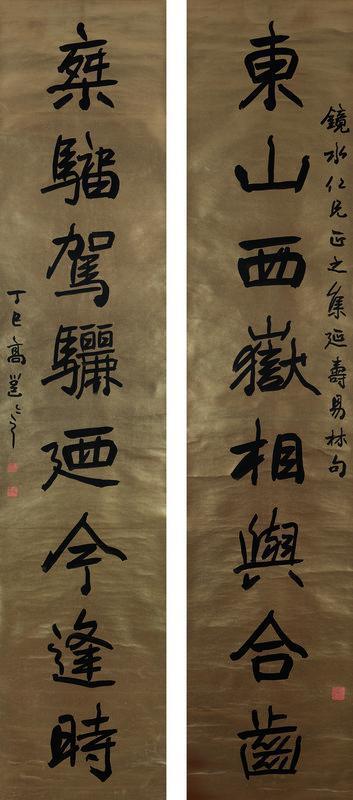 鏡水仁兄正之集延壽易林句
東山西嶽相與合齒
椉騮駕驪廼今逢時
丁巳高邕之